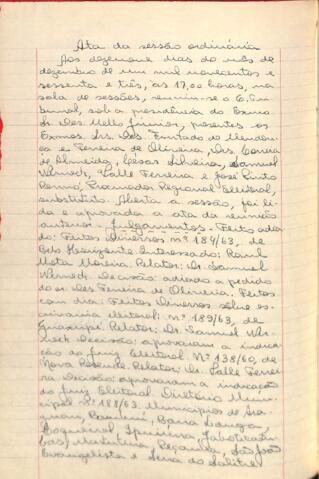 Ata da sessão ordinária
Aos dezenove dias do mês de
dezembro de um mil novecentos e
sessenta e três, às 17,00 horas, na
sala de sessões, reuniu-se o E. Tri-
bunal, sob a presidência do Exmo.
Sr. Des. Mello Júnior, presentes os
Exmos. Srs. Des. Furtado de Mendon-
ça e Ferreira de Oliveira, Drs. Correa
de Almeida, Cesar Silveira, Samuel
Werneck, Valle Ferreira e José Pinto
Renno, Procurador Regional Eleitoral,
substituto. Aberta a sessão, foi li-
da e aprovada a ata da reunião
anterior. Julgamentos. Feitos adia-
do: Feitos Diversos nº 184/63, de
Belo Horizonte. Interessado: Raul
Mota Moreira. Relator: Dr. Samuel
Werneck. Decisão: adiado a pedido
do sr. Des. Ferreira de Oliveira. Feitos
com dia: Feitos Diversos sobre es-
crivania eleitoral: nº 189/63, de
Guaxupé. Relator: Dr. Samuel Wer-
neck. Decisão: aprovaram a indica-
ção do juiz eleitoral. Nº 138/60, de
Nova Resende. Relator: Dr. Valle Ferrei-
ra. Decisão: aprovaram a indicação
do juiz eleitoral. Diretório Muni-
cipal nº 188/63. Municípios de
Barra Longa,
Jaboticatu-
bas, Peçanha, São João
Evangelista e Serra do Salitre